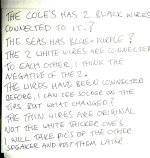 THE COLE'S HAS 2 BLACK WIRES
CONNECTED TO IT.?
THE SEAS HAS BLUE+ PURPLE ?
THE 2 WHITE WIRES ARE CONNECTED
TO EACH OTHER, I THINK THE
NEGATIVE OF THE 2.
THE WIRES HAVE BEEN CONNECTED
BEFORE, I CAN SEE SOLDER ON THE
BUT WHAT CHANGED?
THE THIN WIRES ARE ORIGINAL
NOT THE WHITE THICKER ONE'S
I WILL TAKE PICS OF THE OTHER
SPEAKER AND POST THEM LATER